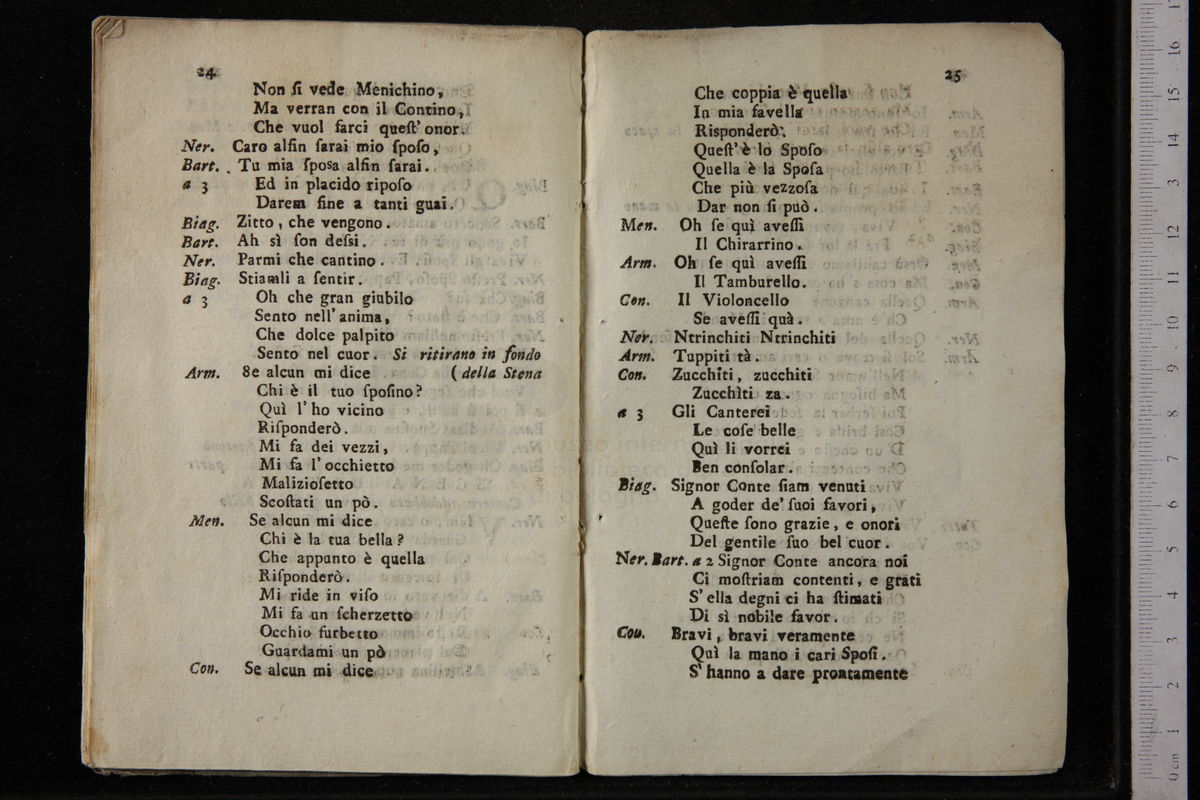 24
Non ſi vede Menichino,
Ma verran con il Contino,
Che vuol farci queſt' onor.
Ner. Caro alfin ſarai mio ſpoſo,
Bart. Tu mia ſposa alfin ſarai.
a 3 Ed in placido ripoſo
Darem fine a tanti guai.
Biag. Zitto, che vengono.
Bart. Ah sì ſon deſsi.
Ner. Parmi che cantino.
Biag. Stiamli a ſentir.
a 3 Oh che gran giubilo
Sento nell' anima,
Che dolce palpito
Sento nel cuor. Si ritirano in fondo
Arm. 8e alcun mi dice (della Stena
Chi è il tuo ſpoſino?
Quì l' ho vicino
Riſponderò.
Mi fa dei vezzi,
Mi fa l' occhietto
Malizioſetto
Scoſtati un pò.
Men. Se alcun mi dice
Chi è la tua bella?
Che appunto è quella
Riſponderò.
Mi ride in viſo
Mi fa un ſcherzetto
Occhio furbetto
Guardami un pò
Con. Se alcun mi dice
25
Che coppia è quella
In mia favella
Risponderò.
Queſt' è lo Spoſo
Quella è la Spoſa
Che più vezzoſa
Dar non ſi può.
Men. Oh ſe quì aveſſi
Il Chirarrino.
Arm. Oh ſe quì aveſſi
Il Tamburello.
Con. Il Violoncello
Se aveſſi quà.
Ner. Ntrinchiti Ntrinchiti
Arm. Tuppiti tà.
Con. Zucchiti, zucchiti
Zucchiti za.
a 3 Gli Canterei
Le coſe belle
Quì li vorrei
Ben conſolar.
Biag. Signor Conte ſiam venuti
A goder de' ſuoi favori,
Queſte ſono grazie, e onori
Del gentile ſuo bel cuor.
Ner. Bart. a 2 Signor Conte ancora noi
Ci moſtriam contenti, e grati
S' ella degni ci ha ſtimati
Di sì nobile favor.
Cou. Bravi, bravi veramente
Quì la mano i cari Spoſi.
S' hanno a dare prontamente